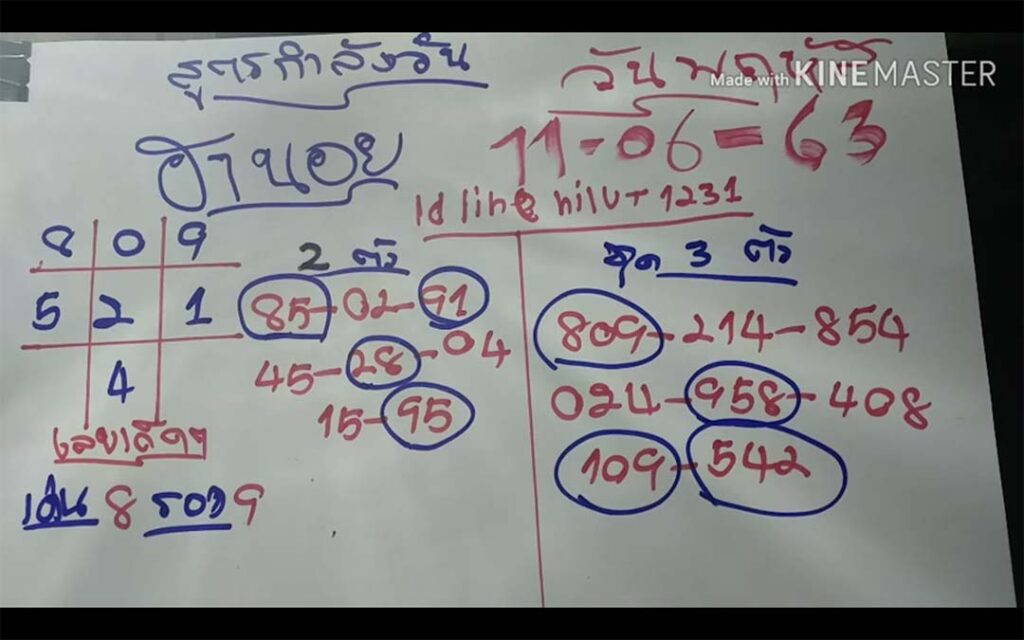 สูตรกำลังวัน
วันพฤหัส
Made with KINEMASTER
ฮานอย
11-06-63
Id line nilut1231
8 0 9
5 2 1
4
เลขเด็ดๆ
เด่น 8 รอง 9
2 ตัว
85-02-91
45-28-04
15-95
ชุด 3 ตัว
809-214-854
024-958-408
109-542